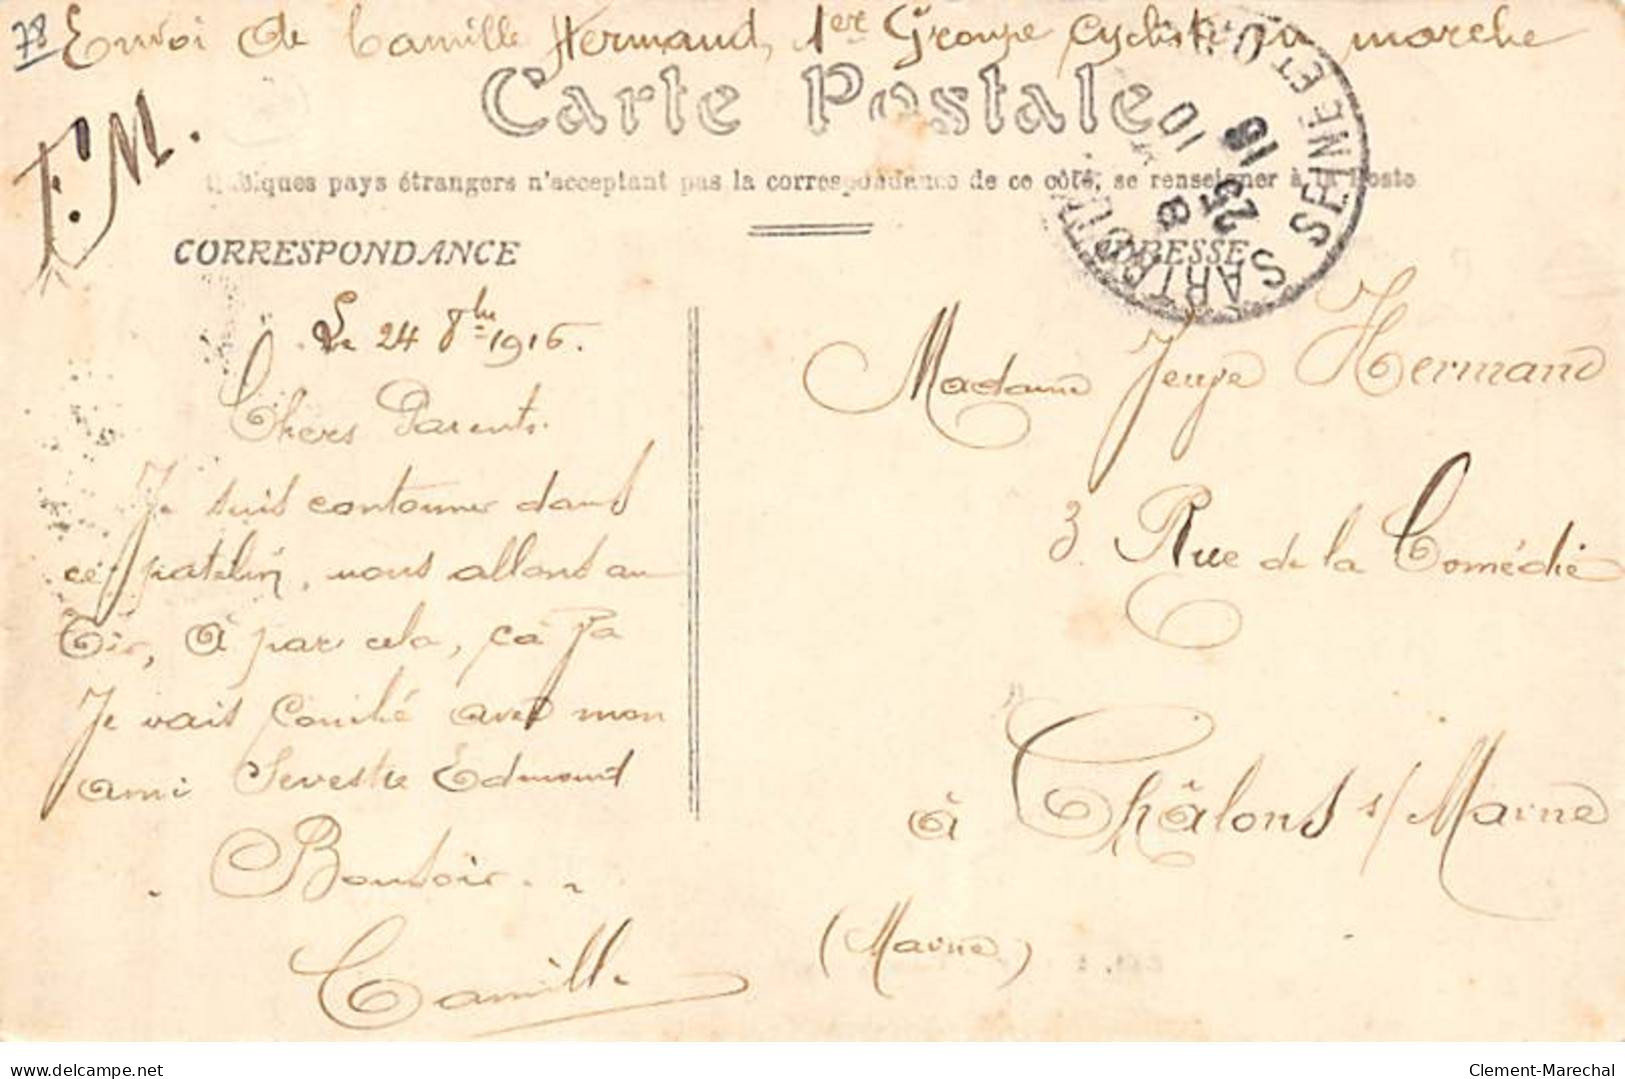 78 Envoi de Camille Hermand, 1er Groupe Cycliste en marche
F.M.
Carte Postale
Quelques pays étrangers n'acceptant pas la correspondance de ce côté, se renseigner à la Poste
CORRESPONDANCE
ADRESSE
SEINE ET O
8
25
10
16
Le 24 8bre 1916.
Chers Parents.
Je suis contonner dans
ce patelin, nous allons au
Tir, à part cela, ça va
Je vais couché avec mon
ami Sevestre Edmond
Bonsoir.
Camille
Madame Hermand
3 Rue de la Comédie
à Châlons s/Marne
(Marne)
Clement-Marechal
www.delcampe.net